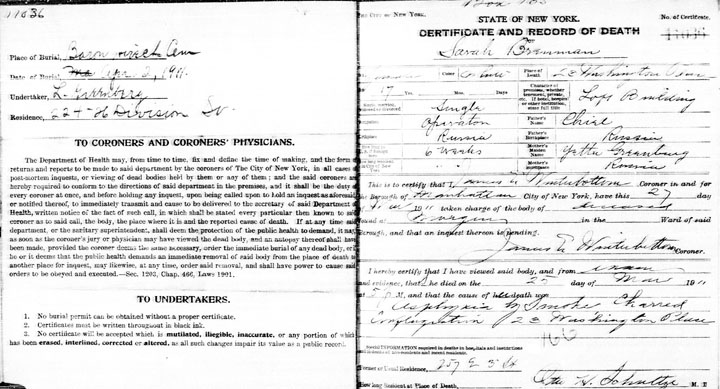 Place of Burial, Baron Hirsch Cem
Date of Burial, Apr 2, 1911.
Undertaker,
Residence, 224-26 Division St.
TO CORONERS AND CORONERS' PHYSICIANS.
The Department of Health may, from time to time, fix and define the time of making, and the form
returns and reports to be made to said department by the coroners of The City of New York, in all cases
post-mortem inquests, or viewing of dead bodies held by them or any of them; and the said coroners
hereby required to conform to the directions of said department in the premises, and it shall be the duty
every coroner at once, and before holding any inquest, upon being called upon to hold an inquest as aforesaid
or notified thereof, to immediately transmit and cause to be delivered to the secretary of said Department of
Health, written notice of the fact of such call, in which shall be stated every particular then known to said
coroner as to said call, the body, the place where it is and the reported cause of death. If at any time said
department, or the sanitary superintendent, shall deem the protection of the public health to demand it, may
as soon as the coroner's jury or physician may have viewed the dead body, and an autopsy thereof shall have
been made, provided the coroner deems the same necessary, order the immediate burial of any dead body, or
he or it deems that the public health demands an immediate removal of said body from the place of death to
another place for inquest, may likewise, at any time, order said removal, and shall have power to cause said
orders to be obeyed and executed.—Sec. 1203, Chap. 466, Laws 1901.
TO UNDERTAKERS.
1. No burial permit can be obtained without a proper certificate.
2. Certificates must be written throughout in black ink.
3. No certificate will be accepted which is mutilated, illegible, inaccurate, or any portion of which
has been erased, interlined, corrected or altered, as all such changes impair its value as a public record.
THE CITY OF NEW YORK.
STATE OF NEW YORK.
No. of Certificate.
CERTIFICATE AND RECORD OF DEATH
OF
Sarah Brenman
Color White Place of Death, 23 Washington Place
17 Yrs. Mos. Days Character of premises, whether tenement, private, etc. If hotel, hospital or other institution, state full title Loft Building
Single
Operator Father's Name
Russia Father's Birthplace Russia
6 weeks Mother's Maiden Name
Mother's Birthplace Russia
This is to certify that I, James E. Winterbottom Coroner in and for
the Borough of Manhattan City of New York, have this 27 day
1911 taken charge of the body of deceased
found at Morgue in the Ward of said
Borough, and that an inquest thereon is pending.
James E. Winterbottom Coroner.
I hereby certify that I have viewed said body, and from exam
and evidence, that he died on the 25 day of Mar 1911
M, and that the cause of h death was
Asphyxia by Smoke Charred
Conflagration 23 Washington Place
Special INFORMATION required in deaths in hospitals and institutions
and in deaths of non-residents and recent residents.
Former or Usual Residence, 257 E 3 St
How long Resident at Place of Death, Otto H. Schultze M. D.